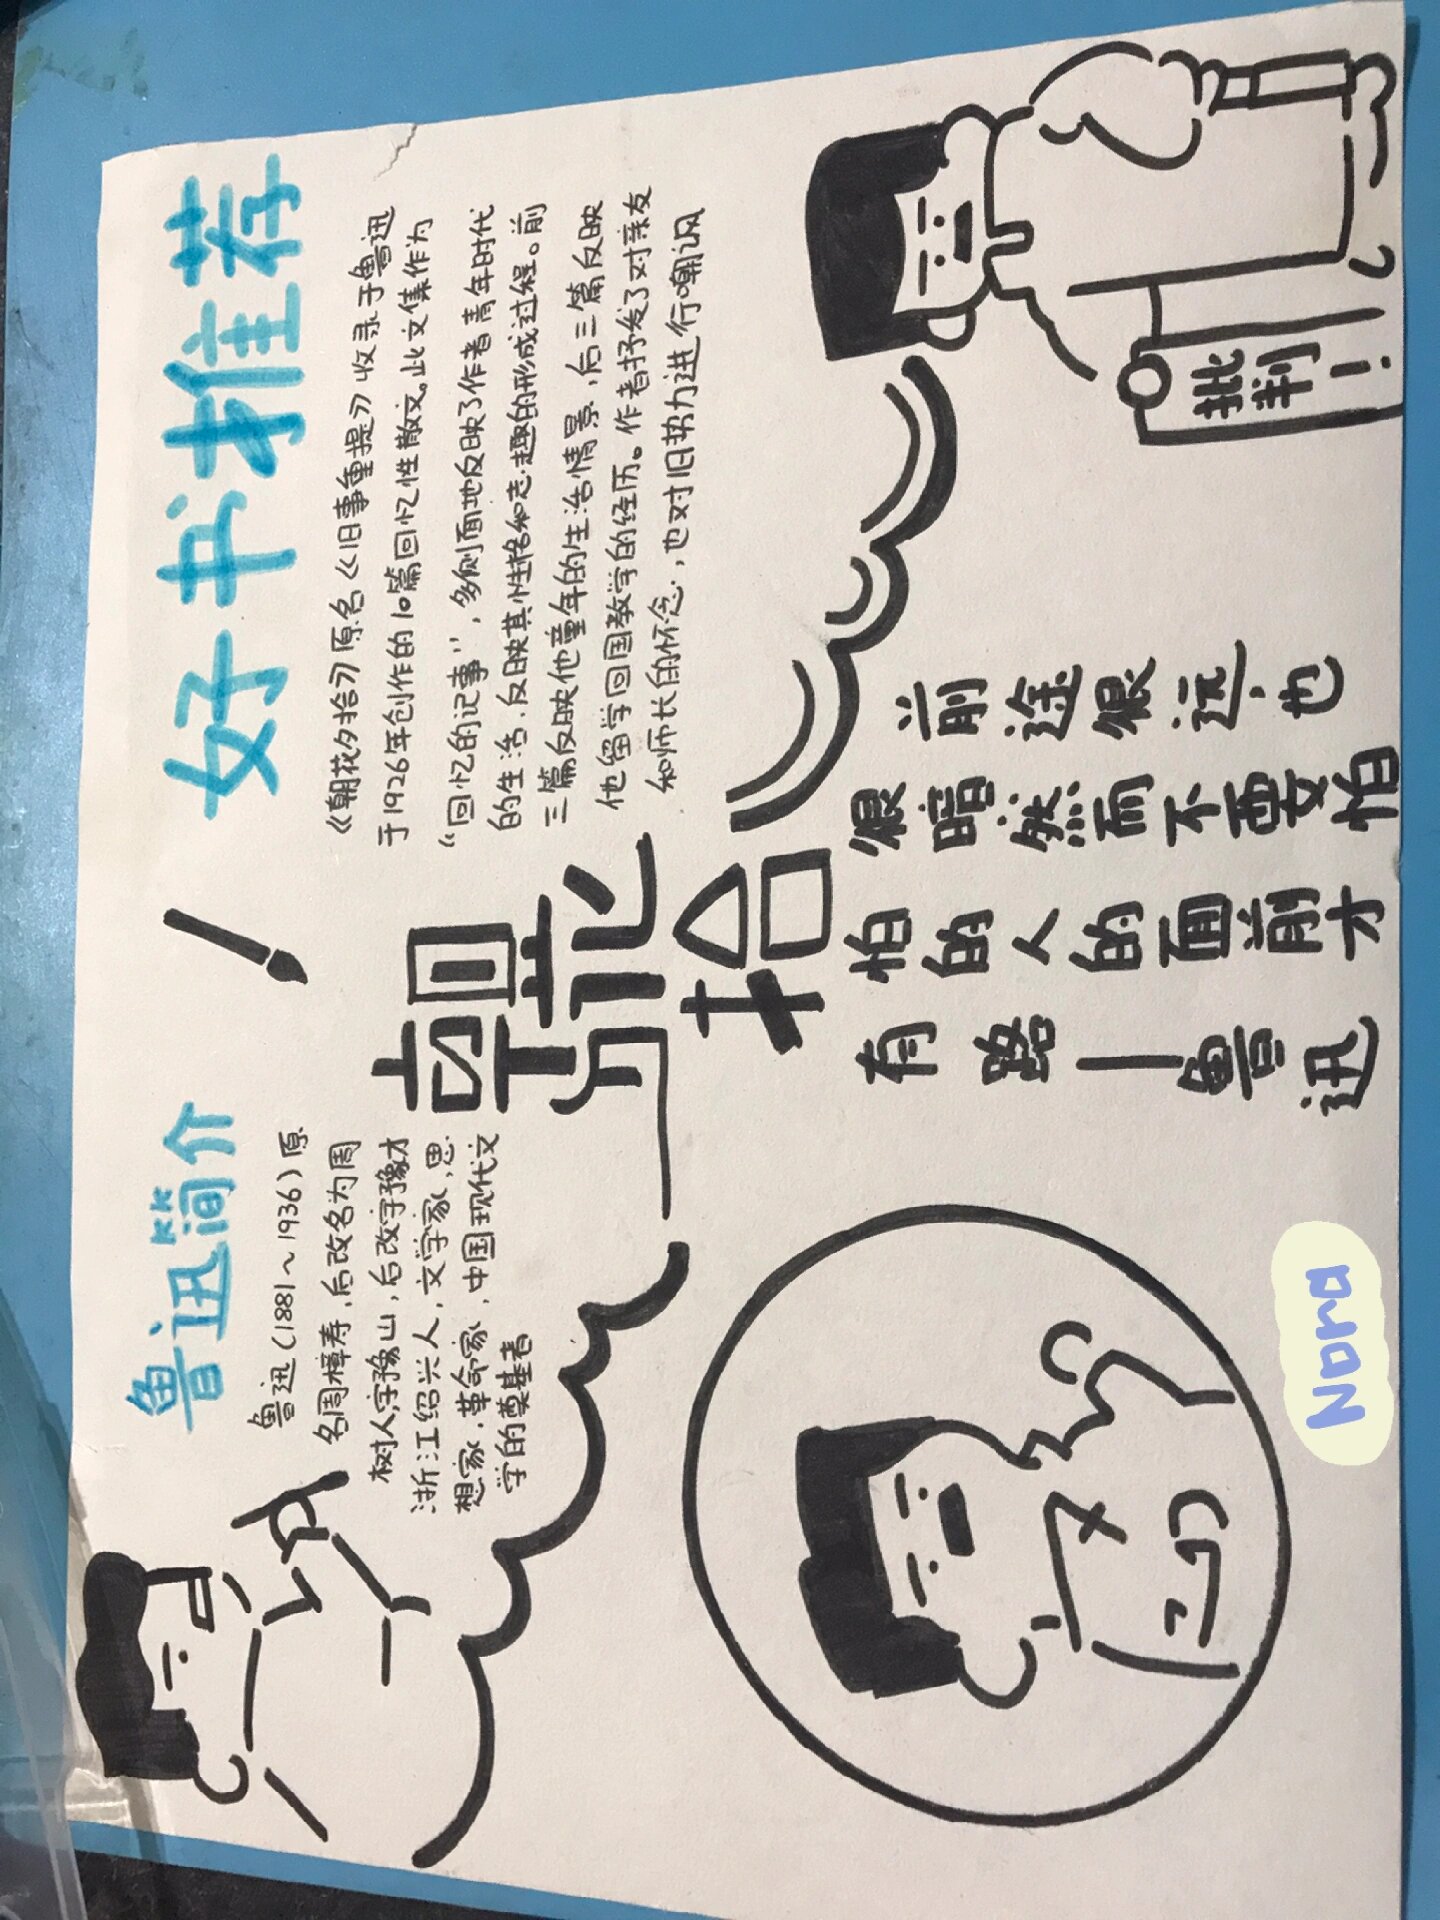 鲁迅简介
鲁迅(1881~1936)原
名周樟寿,后改名为周
树人,字豫山,后改字豫才
浙江绍兴人,文学家,思
想家,革命家,中国现代文
学的奠基者
好书推荐
《朝花夕拾》原名《旧事重提》收录于鲁迅
于1926年创作的10篇回忆性散文。此文集作为
“回忆的记事”,多侧面地反映了作者青年时代
的生活,反映其性格和志趣的形成过程。前
三篇反映他童年的生活情景,后三篇反映
他留学回国教学的经历。作者抒发了对亲友
和师长的怀念,也对旧势力进行嘲讽
朝花
夕拾
前途很远,也
很暗然而不要怕
怕的人的面前才
有路—鲁迅
批判!
Nora